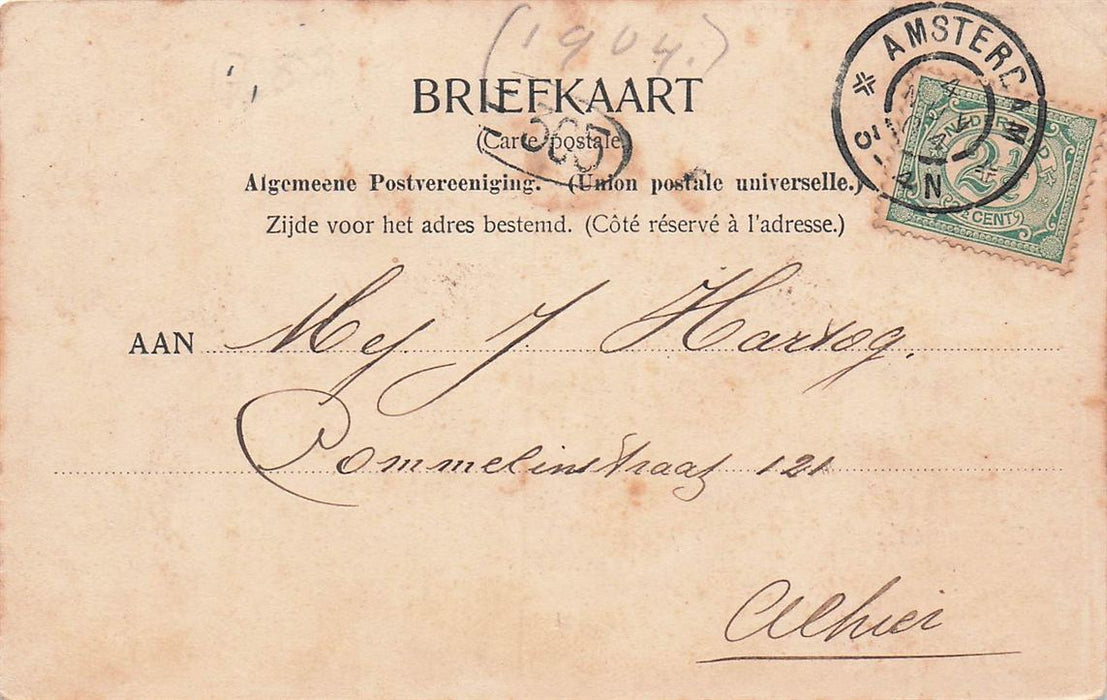 (1904.)
BRIEFKAART
(Carte postale.)
565
Algemeene Postvereeniging. (Union postale universelle.)
Zijde voor het adres bestemd. (Côté réservé à l'adresse.)
AMSTERDAM
NEDERLAND
2½
CENT
AAN Mej. J Hartog.
Pommelinstraat 121
Alhier